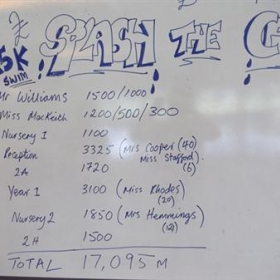 £ SPLASH THE C
5K
SWIM
Mr Williams 1500/1000
Miss MacKeith 1200/500/300
Nursery 1 1100
Reception 3325 (Mrs Cooper (40)
Miss Stafford (6)
2A 1720
Year 1 3100 (Miss Rhodes)
(20)
Nursery2 1850 (Mrs Hemmings)
2H 1500
TOTAL 17,095 M